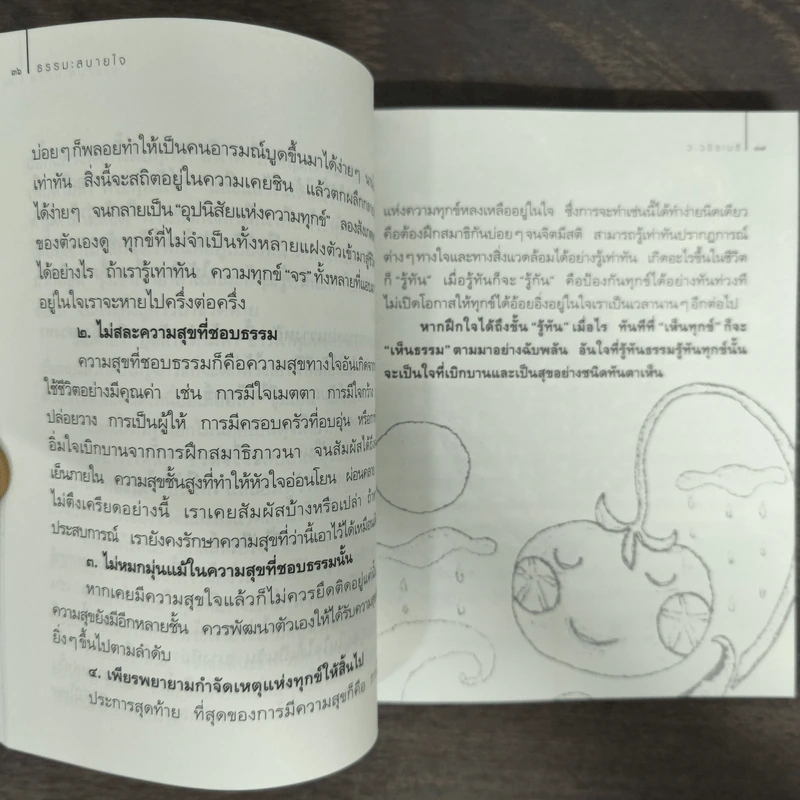 ๓๖ ธรรมะสบายใจ
บ่อยๆ ก็พลอยทำให้เป็นคนอารมณ์บูดขึ้นมาได้ง่ายๆ
เท่าทัน สิ่งนี้จะสถิตอยู่ในความเคยชิน แล้วตกผลึก
ได้ง่ายๆ จนกลายเป็น “อุปนิสัยแห่งความทุกข์”
ของตัวเองดู ทุกข์ที่ไม่จำเป็นทั้งหลายแฝงตัวเข้ามา
ได้อย่างไร ถ้าเรารู้เท่าทัน ความทุกข์ “จร” ทั้งหลายที่
อยู่ในใจเราจะหายไปครึ่งต่อครึ่ง
๒. ไม่สละความสุขที่ชอบธรรม
ความสุขที่ชอบธรรมก็คือความสุขทางใจอันเกิด
ใช้ชีวิตอย่างมีคุณค่า เช่น การมีใจเมตตา การมีใจ
ปล่อยวาง การเป็นผู้ให้ การมีครอบครัวที่อบอุ่น
อิ่มใจเบิกบานจากการฝึกสมาธิภาวนา จนสัมผัสได้
เย็นภายใน ความสุขชั้นสูงที่ทำให้หัวใจอ่อนโยน
ไม่ตึงเครียดอย่างนี้ เราเคยสัมผัสบ้างหรือเปล่า
ประสบการณ์ เรายังคงรักษาความสุขที่ว่านี้เอาไว้ได้
๓. ไม่หมกมุ่นแม้ในความสุขที่ชอบธรรมนั้น
หากเคยมีความสุขใจแล้วก็ไม่ควรยึดติดอยู่
ความสุขยังมีอีกหลายชั้น ควรพัฒนาตัวเองให้ได้รับ
ยิ่งๆ ขึ้นไปตามลำดับ
๔. เพียรพยายามกำจัดเหตุแห่งทุกข์ให้สิ้นไป
ประการสุดท้าย ที่สุดของการมีความสุขก็คือ
แห่งความทุกข์หลงเหลืออยู่ในใจ ซึ่งการจะทำเช่นนี้ได้ทำง่ายนิดเดียว
คือต้องฝึกสมาธิกันบ่อยๆ จนจิตมีสติ สามารถรู้เท่าทันปรากฏการณ์
ต่างๆ ทางใจและทางสิ่งแวดล้อมได้อย่างรู้เท่าทัน เกิดอะไรขึ้นในชีวิต
ก็ “รู้ทัน” เมื่อรู้ทันก็จะ “รู้กัน” คือป้องกันทุกข์ได้อย่างทันท่วงที
ไม่เปิดโอกาสให้ทุกข์ได้อ้อยอิ่งอยู่ในใจเราเป็นเวลานานๆ อีกต่อไป
หากฝึกใจได้ถึงขั้น “รู้ทัน” เมื่อไร ทันทีที่ “เห็นทุกข์” ก็จะ
“เห็นธรรม” ตามมาอย่างฉับพลัน อันใจที่รู้ทันธรรมรู้ทันทุกข์นั้น
จะเป็นใจที่เบิกบานและเป็นสุขอย่างชนิดทันตาเห็น